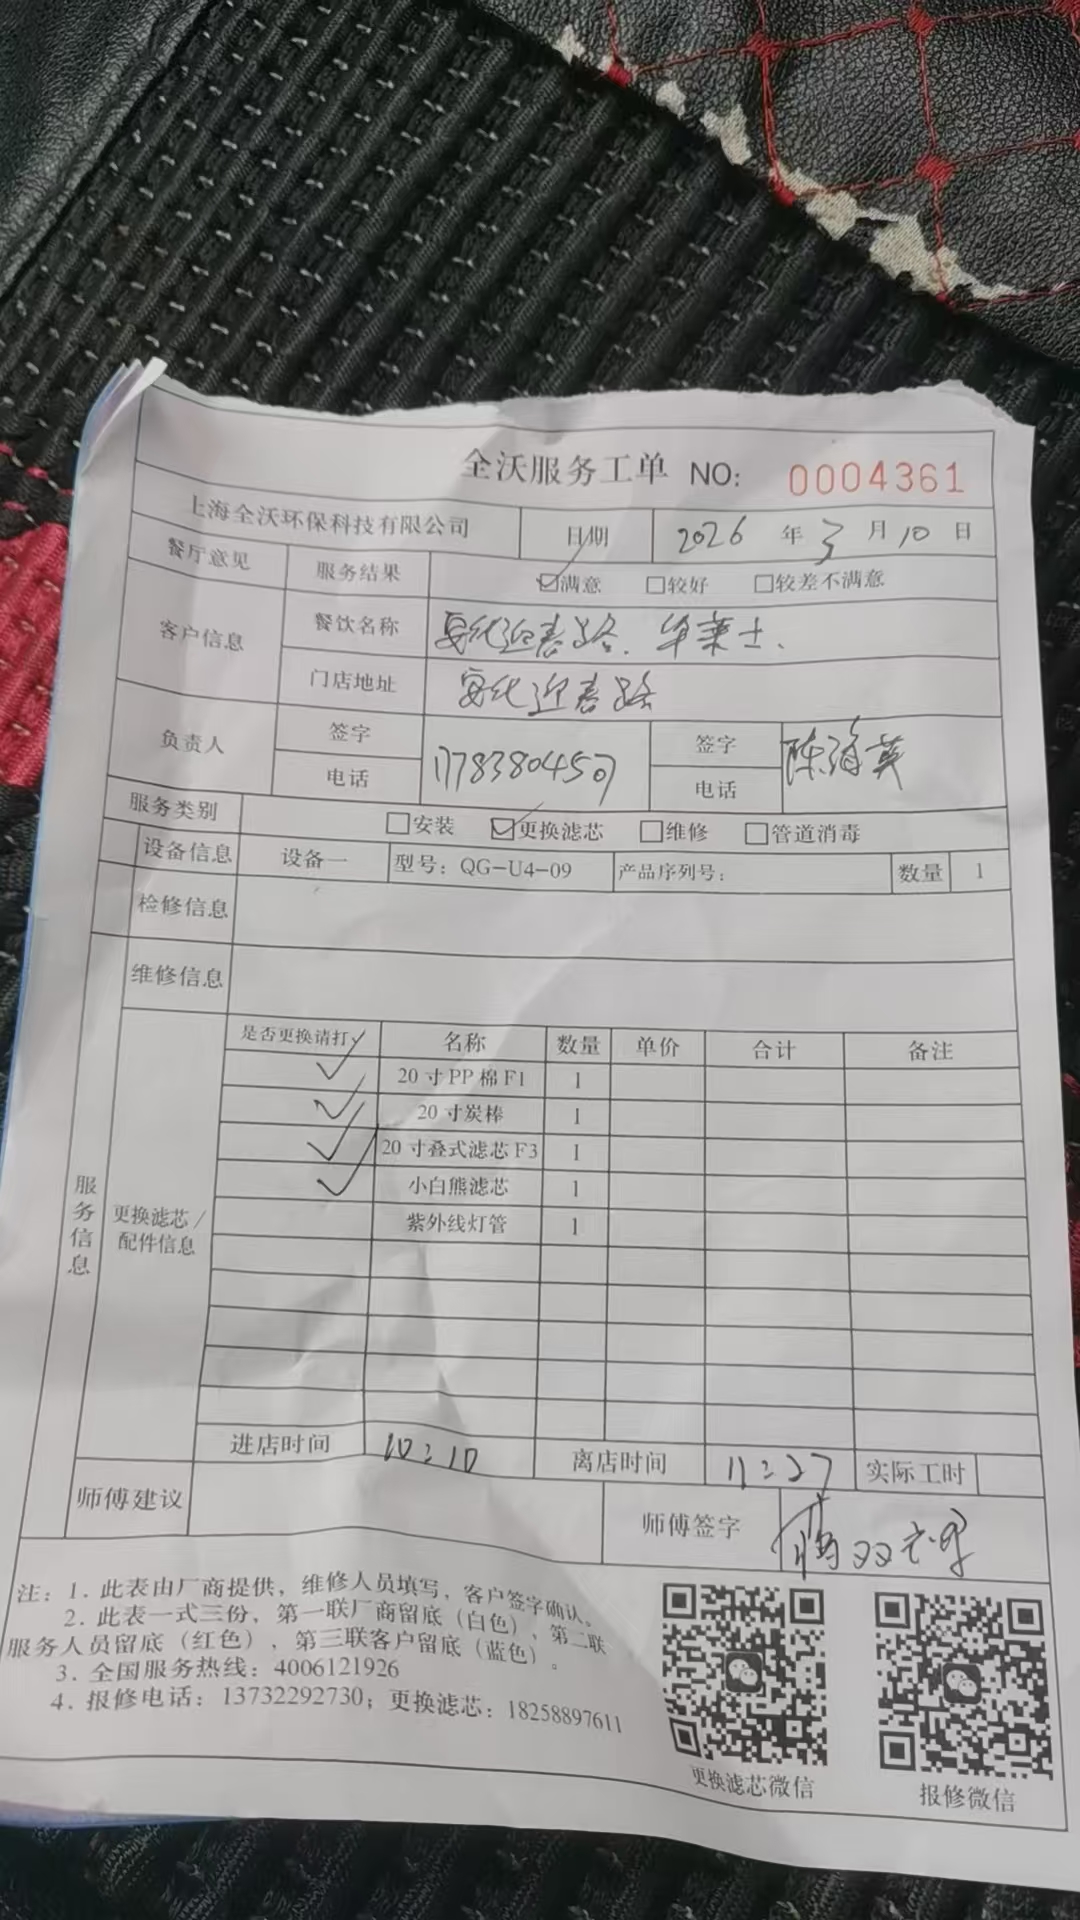 全沃服务工单 NO: 0004361
上海全沃环保科技有限公司 日期 2026 年 3 月 10 日
餐厅意见 服务结果 ☑满意 □较好 □较差不满意
客户信息 餐饮名称 安化迎春路. 华莱士.
门店地址 安化迎春路
负责人 签字 17783804507 签字 陈海英
电话 电话
服务类别 □安装 ☑更换滤芯 □维修 □管道消毒
设备信息 设备一 型号: QG-U4-09 产品序列号: 数量 1
检修信息
维修信息
服务信息
更换滤芯/配件信息
是否更换请打✓ 名称 数量 单价 合计 备注
✓ 20寸PP棉F1 1
✓ 20寸炭棒 1
✓ 20寸叠式滤芯F3 1
✓ 小白熊滤芯 1
紫外线灯管 1
进店时间 10:10 离店时间 11:27 实际工时
师傅建议 师傅签字
注: 1. 此表由厂商提供, 维修人员填写, 客户签字确认。
2. 此表一式三份, 第一联厂商留底(白色), 第二联
服务人员留底(红色), 第三联客户留底(蓝色)。
3. 全国服务热线: 4006121926
4. 报修电话: 13732292730; 更换滤芯: 18258897611
更换滤芯微信 报修微信